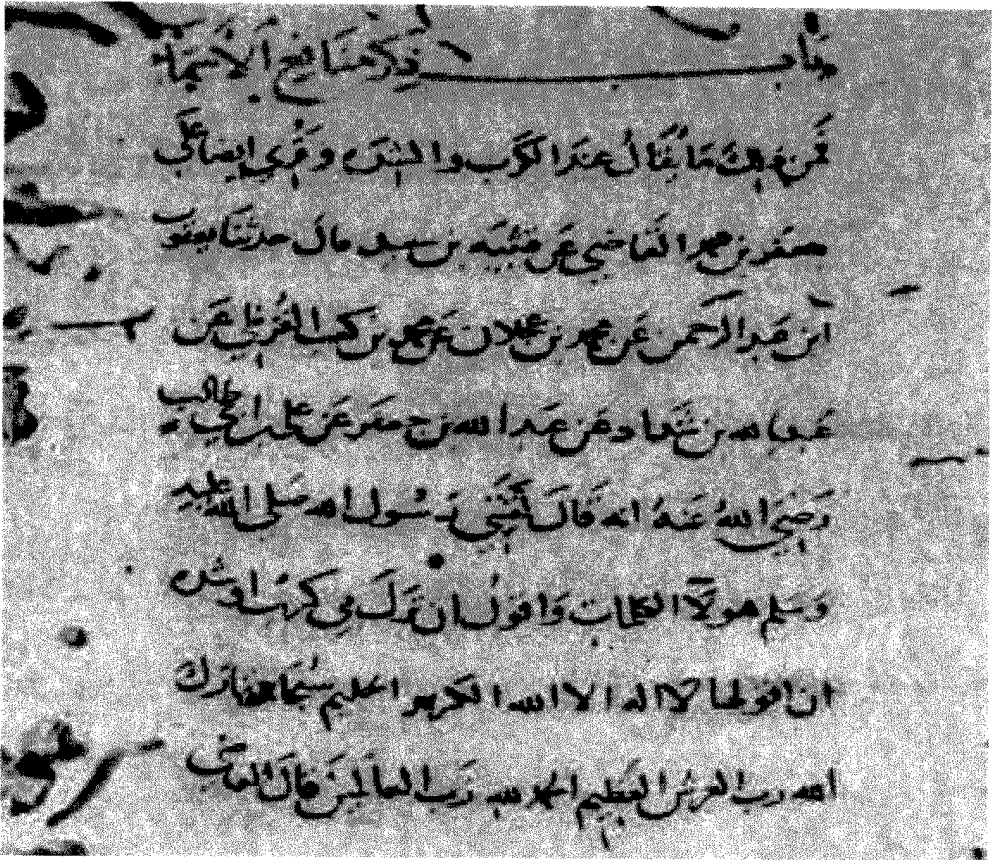 باب ذكر منافع الاسماء
فمن ذلك ما يقال عند الكرب والشدة وقرى ايضا على
جعفر بن محمد القاضي عن قتيبه بن سعيد قال حدثنا يعقوب
ابن عبد الرحمن عن محمد بن عجلان عن محمد بن كعب القرظي عن
عبد الله بن شداد عن عبد الله بن جعفر عن علي بن ابي طالب
رضي الله عنه انه قال لقنني رسول الله صلى الله عليه
وسلم هولآ الكلمات واقول ان نزل بي كرب او شدة
ان اقولها لا اله الا الله الكريم الحليم سبحانه تبارك
الله رب العرش العظيم الحمد لله رب العالمين قال القاضي